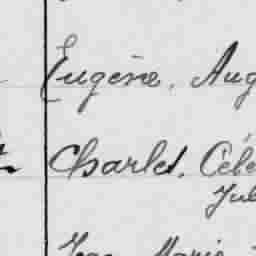 Eugène, Aug
Charles, Céle
Jul
Jean Marie